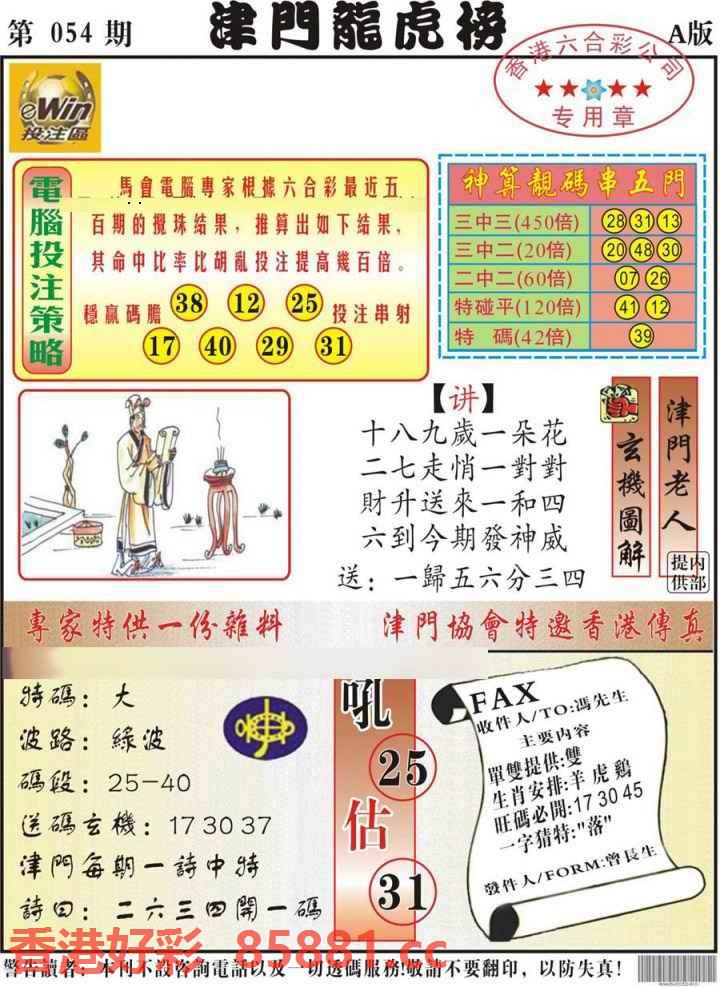 第 054 期
津門龍虎榜
A版
香港六合彩公司
★★★★
专用章
eWin
投注區
電腦投注策略
馬會電腦專家根據六合彩最近五
百期的攪珠结果，推算出如下结果，
其命中比率比胡亂投注提高幾百倍。
穩贏碼膽 38 12 25 投注串射
17 40 29 31
神算靚碼串五門
三中三(450倍) 28 31 13
三中二(20倍) 20 48 30
二中二(60倍) 07 26
特碰平(120倍) 41 12
特 碼(42倍) 39
【讲】
十八九歲一朵花
二七走悄一對對
財升送來一和四
六到今期發神威
送：一歸五六分三四
玄機圖解
津門老人
内部提供
專家特供一份雜料
津門協會特邀香港傳真
特碼：大
波路：綠波
碼段：25—40
送碼玄機：17 30 37
津門每期一詩中特
詩曰：二六三四開一碼
吼
25
估
31
FAX
收件人/TO:馮先生
主要内容
單雙提供:雙
生肖安排:羊虎鷄
旺碼必開:17 30 45
一字猜特:"落"
發件人/FORM:曾長生
香港好彩 85881.cc
警告讀者：本刊不設咨詢電話以及一切透碼服務!敬請不要翻印，以防失真!